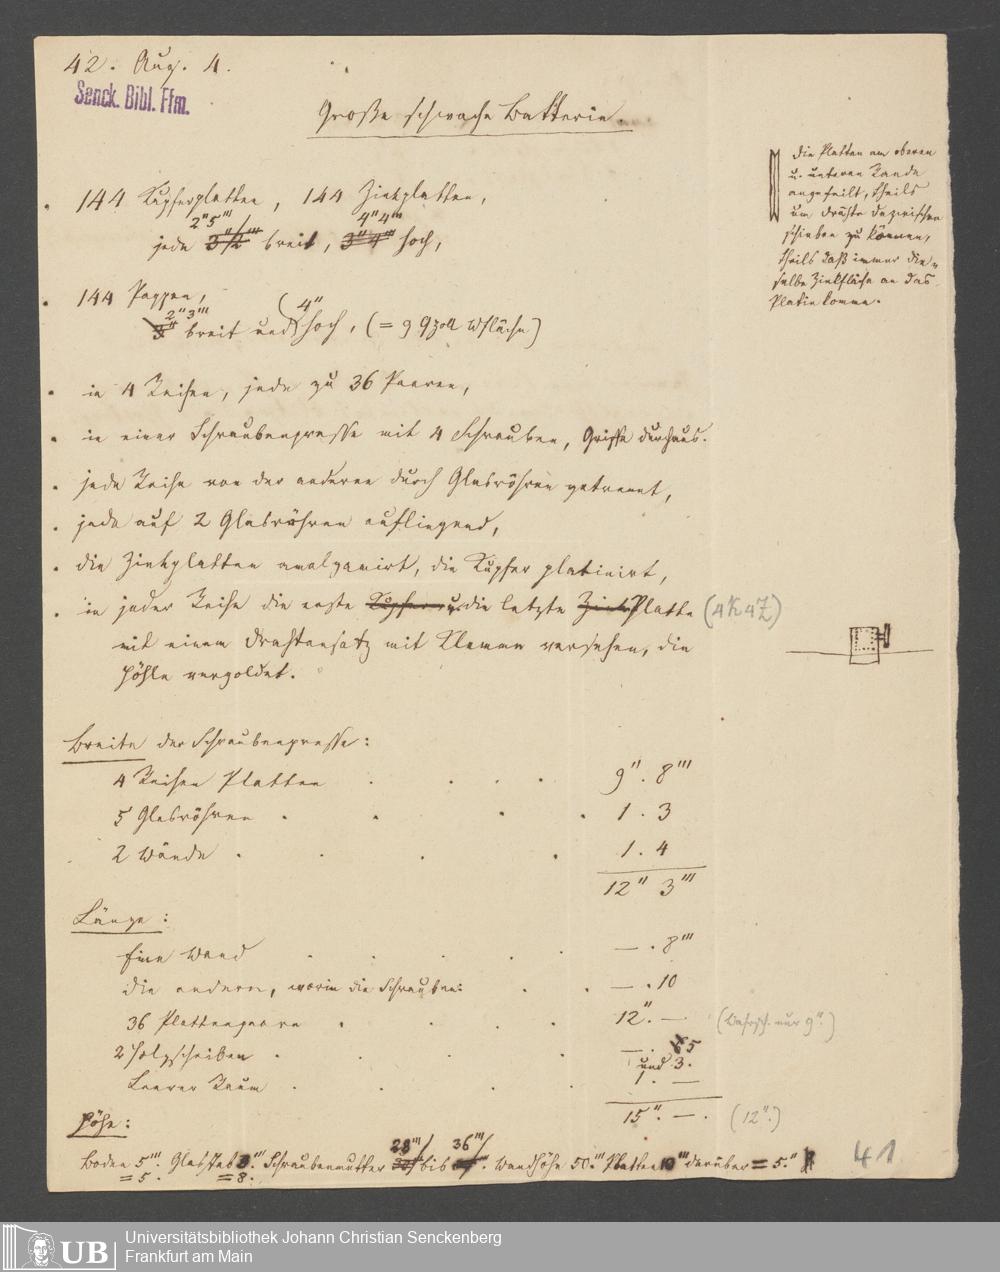 42. Aug. 4.
Senck. Bibl. Ffm.
Große schwache Batterie.
die Platten am oberen
u. unteren Rande
angefeilt, theils
um Drähte dazwischen
schieben zu können,
theils daß immer die=
selbe Zinkfläche an das
Platin komme.
144 Kupferplatten, 144 Zinkplatten,
2" 5''' 4" 4'''
jede 3" 1/2''' breit, 3" 4''' hoch,
144 Pappen,
2" 3''' 4"
3" breit und hoch, (= 9 Qzoll Wfläche)
in 4 Reihen, jede zu 36 Paaren,
in einer Schraubenpresse mit 4 Schrauben, Griffe durchaus.
jede Reihe von der anderen durch Glasröhren getrennt,
jede auf 2 Glasröhren aufliegend,
die Zinkplatten amalgamirt, die Kupfer platinirt,
in jeder Reihe die erste Kupfer- u. die letzte Zink Platte (4K4Z)
mit einem Drahtansatz mit Klemme versehen, die
Höhle vergoldet.
Breite der Schraubenpresse:
4 Reihen Platten . . . . 9". 8'''
5 Glasröhren . . . . 1 . 3
2 Wände . . . . 1. 4
12" 3'''
Länge:
Eine Wand . . . . . — . 8'''
die andere, worin die Schrauben: . . — . 10
36 Plattenpaare . . . . 12". — ( nur 9".)
2 Holzscheiben . . . . — . 5
und 3.
Leerer Raum . . . 1 . —
15". — . (12".)
Höhe:
28''' 36'''
Boden 5'''. Glasstab 3.''' Schraubenmutter bis . Wandhöhe 50.''' Platten 10''' darüber = 5."
= 5. = 8.
41
UB
Universitätsbibliothek Johann Christian Senckenberg
Frankfurt am Main